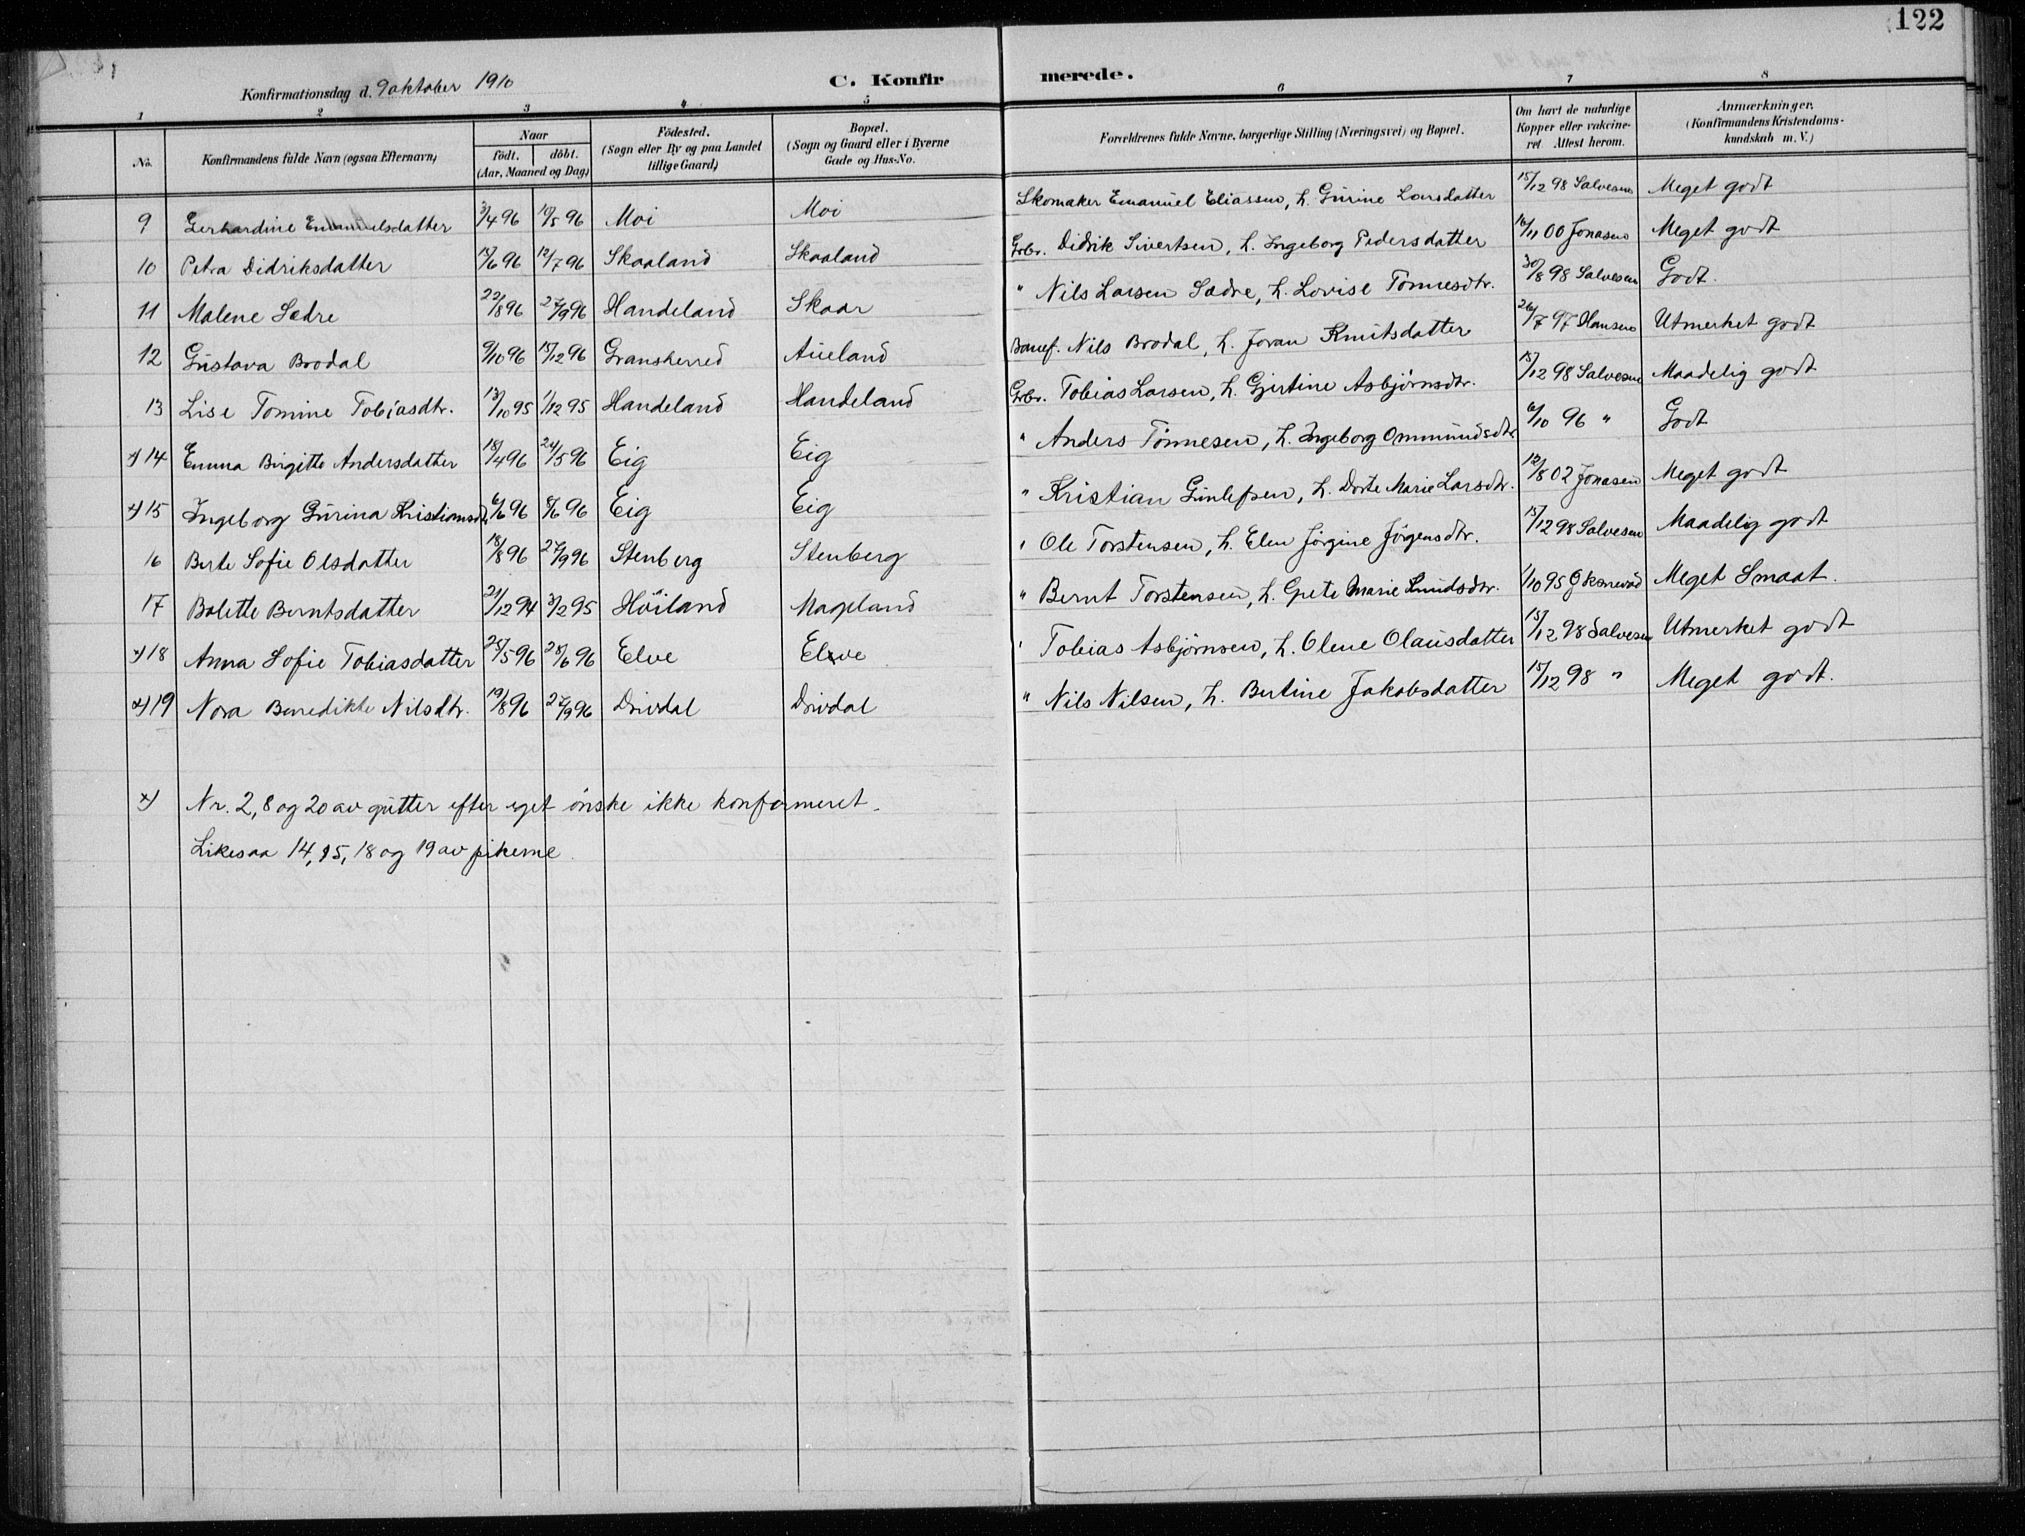 122
Konfirmationsdag d. 9 oktober 1910 C. Konfirmerede.
1 2 3 4 5 6 7 8
No. Konfirmandens fulde Navn (ogsaa Efternavn) Naar födt. döbt. (Aar, Maaned og Dag) Födested. (Sogn eller By og paa Landet tillige Gaard) Bopæl. (Sogn og Gaard eller i Byerne Gade og Hus-No. Forældrenes fulde Navne, borgerlige Stilling (Næringsvei) og Bopæl. Om havt de naturlige Kopper eller vakcineret Attest herom. Anmærkninger. (Konfirmandens Kristendomskundskab m. V.)
9 Gerhardine Emanuelsdatter 3/4 96 10/5 96 Moi Moi Skomaker Emanuel Eliassen, h. Gurine Larsdatter 15/12 98 Salvesen Meget godt
10 Petra Didriksdatter 13/6 96 12/7 96 Skaaland Skaaland Grbr. Didrik Sivertsen, h. Ingeborg Pedersdatter 16/11 00 Jonasen Meget godt
11 Malene Sædre 22/8 96 27/9 96 Handeland Skaar " Nils Larsen Sædre, h. Lovise Tønnesdtr. 30/8 98 Salvesen Godt.
12 Gustava Brodal 9/10 96 15/12 96 Gransherred Aueland Banef. Nils Brodal, h. Joran Knutsdatter 26/7 97 Hansen Utmerket godt
13 Lise Tomine Tobiasdtr. 13/10 95 1/12 95 Handeland Handeland Grbr. Tobias Larsen, h. Gjertine Asbjørnsdtr. 15/12 98 Salvesen Maadelig godt
x) 14 Emma Birgitte Andersdatter 18/4 96 24/5 96 Eig Eig " Anders Tønnesen, h. Ingeborg Ommundsdtr 6/10 96 " Godt
x) 15 Ingeborg Gurina Kristiansdtr 6/6 96 8/6 96 Eig Eig " Kristian Gunlefsen, h. Dorte Marie Larsdtr. 12/8 02 Jonasen Meget godt
16 Berte Sofie Olsdatter 18/8 96 27/9 96 Stenberg Stenberg " Ole Torstensen, h. Elen Jørgine Jørgensdtr. 15/12 98 Salvesen Maadelig godt
17 Bolette Berntsdatter 21/12 94 3/2 95 Höiland Mageland " Bernt Torstensen, h. Grete Marie 1/10 95 Meget Smaat.
x) 18 Anna Sofie Tobiasdatter 25/5 96 28/6 96 Elve Elve " Tobias Asbjørnsen, h. Olene Olausdatter 15/12 98 Salvesen Utmerket godt
x) 19 Nora Benedikte Nilsdtr. 19/8 96 27/9 96 Drivdal Drivdal " Nils Nilsen, h. Bertine Jakobsdatter 15/12 98 " Meget godt.
x) Nr. 2, 8 og 20 av gutter efter eget ønske ikke konfirmeret.
Likesaa 14, 15, 18 og 19 av pikerne